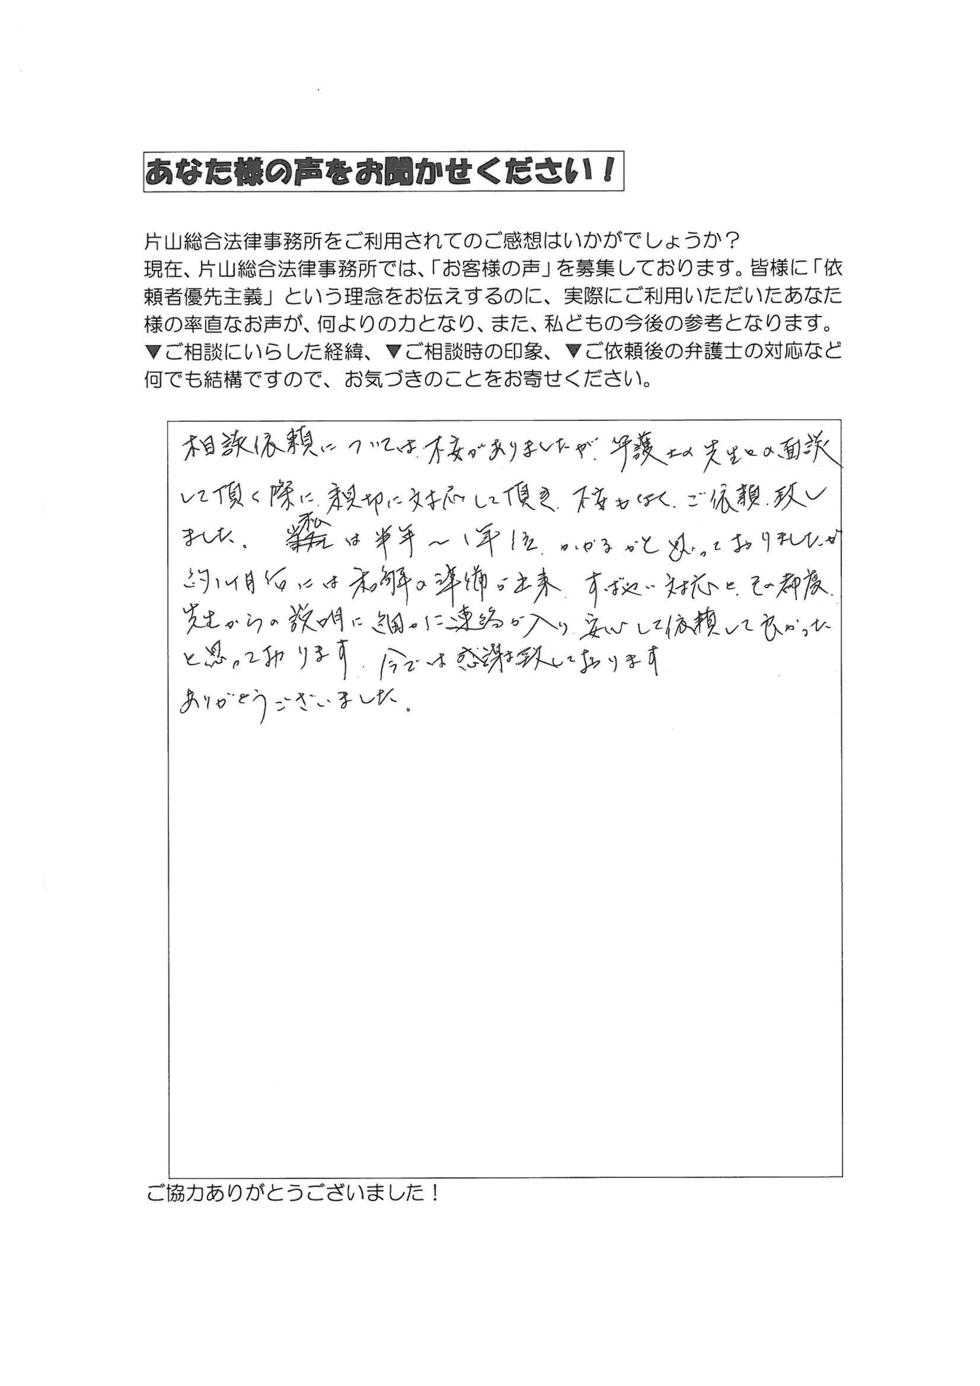 あなた様の声をお聞かせください！
片山総合法律事務所をご利用されてのご感想はいかがでしょうか？
現在、片山総合法律事務所では、「お客様の声」を募集しております。皆様に「依
頼者優先主義」という理念をお伝えするのに、実際にご利用いただいたあなた
様の率直なお声が、何よりの力となり、また、私どもの今後の参考となります。
▼ご相談にいらした経緯、▼ご相談時の印象、▼ご依頼後の弁護士の対応など
何でも結構ですので、お気づきのことをお寄せください。
相談依頼については、不安がありましたが、弁護士の先生との面談
して頂く際に、親切に対応して頂き、不安もなく、ご依頼致し
ました。私は半年〜1年位、かかるかと思っておりましたが
約1ヶ月後には和解の準備が出来、すばやい対応と、その都度、
先生からの説明に細かに連絡が入り、安心して依頼して良かった
と思っております。今では感謝致しております
ありがとうございました。
ご協力ありがとうございました！